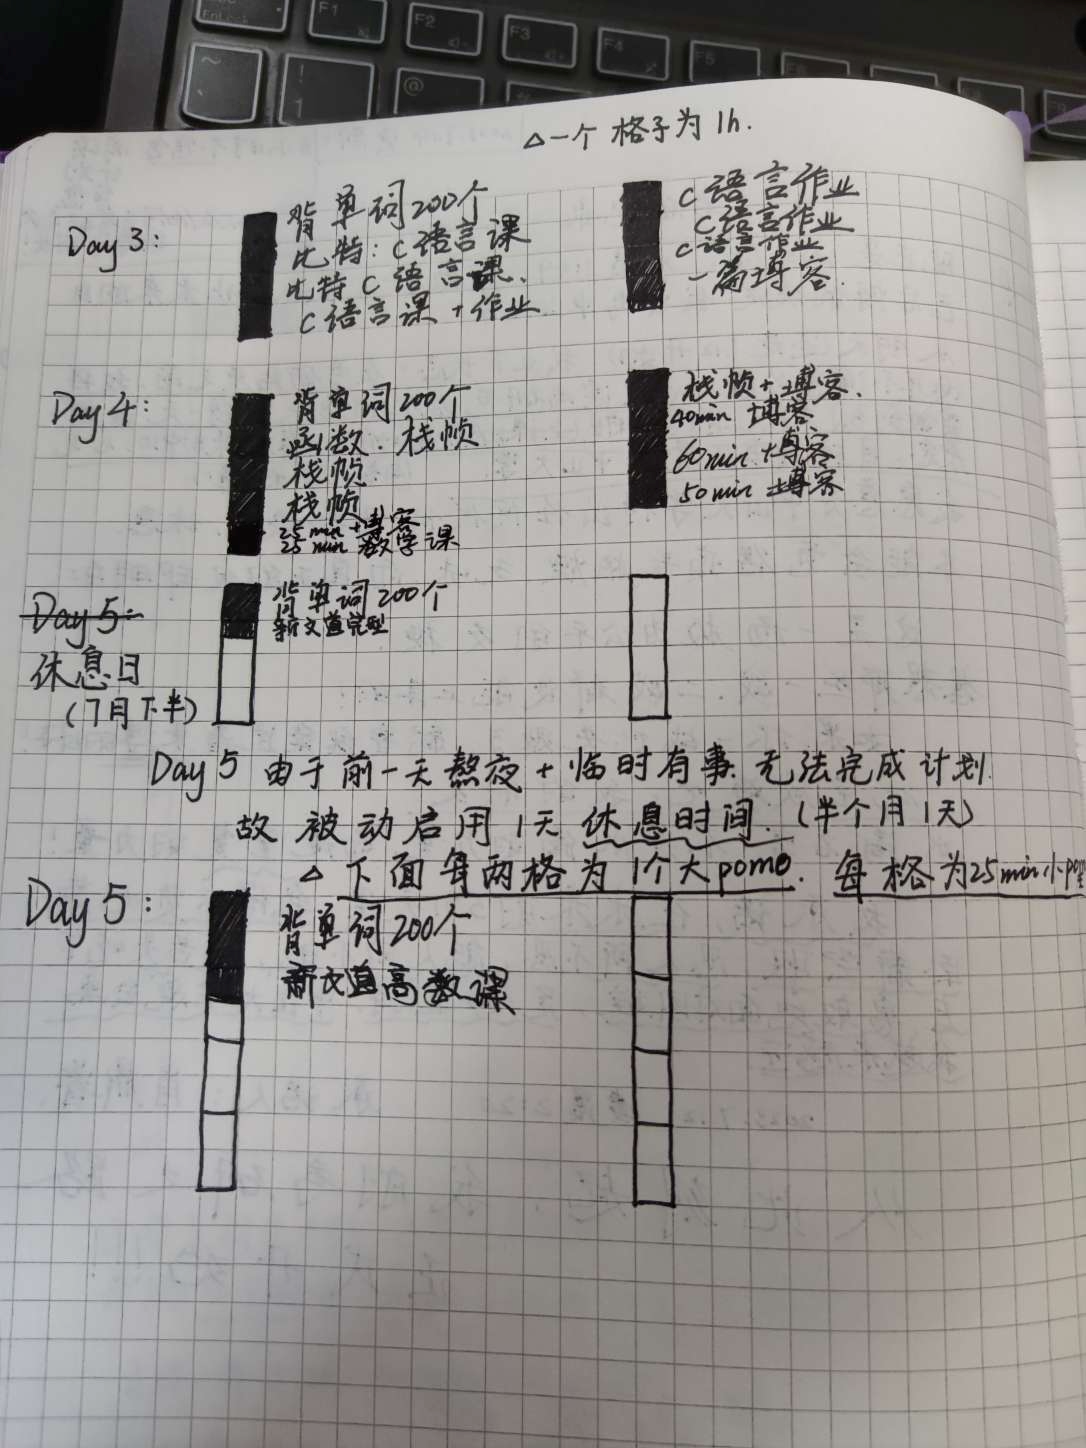 △一个格子为1h.
Day 3:
背单词200个
比特:C语言课
比特C语言课.
C语言课+作业
C语言作业
C语言作业
C语言作业
一篇博客.
Day 4:
背单词200个
函数.栈帧
栈帧
栈帧
25min+博客
25min 数学课
栈帧+博客.
40min 博客
60min+博客
50min 博客
Day 5:
休息日
(7月下半)
背单词200个
新文道完型
Day 5 由于前一天熬夜+临时有事.无法完成计划.
故被动启用1天休息时间.(半个月1天)
△下面每两格为1个大pomo.每格为25min小pomo
Day 5:
背单词200个
新文道高数课
F1
F2
F3
F4
F5